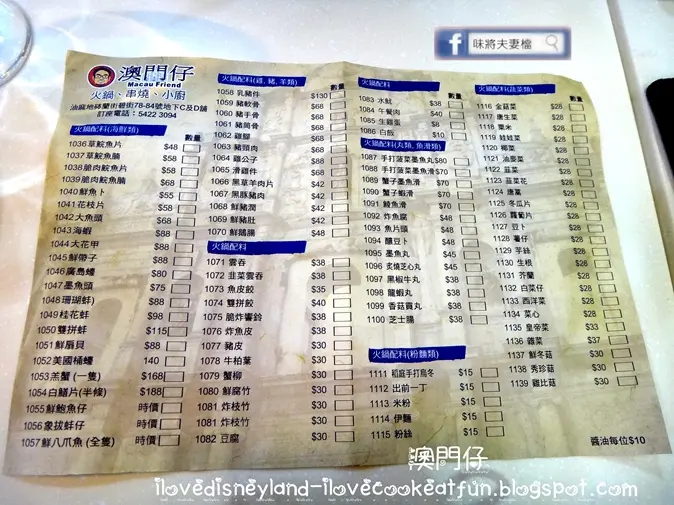 味將夫妻檔
澳門仔
Macau Friend
火鍋、串燒、小廚
油麻地砵蘭街碧街78-84號地下C及D鋪
訂座電話：5422 3094
火鍋配料(海鮮類) 數量
1036 草鯇魚片 $48
1037 草鯇魚腩 $58
1038 脆肉鯇魚片 $58
1039 脆肉鯇魚腩 $68
1040 鮮魚卜 $58
1041 花枝片 $58
1042 大魚頭 $68
1043 海蝦 $88
1044 大花甲 $88
1045 鮮帶子 $88
1046 廣島蠔 $80
1047 墨魚頭 $75
1048 珊瑚蚌) $88
1049 桂花蚌 $98
1050 雙拼蚌 $115
1051 鮮扇貝 $88
1052 美國桶蠔 140
1053 羔蟹 (一隻) $168
1054 白鱔片(半條) $188
1055 鮮鮑魚仔 時價
1056 象拔蚌仔 時價
1057 鮮八爪魚 (全隻) 時價
火鍋配料(雞, 豬, 羊類) 數量
1058 乳豬件 $130
1059 豬軟骨
1060 豬手骨
1061 豬筒骨
1062 雞腳
1063 豬頸肉
1064 雞公子
1065 滑雞件
1066 黑草羊肉片
1067 黑豚豬肉
1068 鮮豬潤
1069 鮮豬肚
1070 鮮鵝腸
火鍋配料
1071 雲吞 $38
1072 韭菜雲吞 $38
1073 魚皮餃 $35
1074 雙拼餃 $40
1075 脆炸響鈴 $38
1076 炸魚皮 $35
1077 豬皮 $30
1078 牛柏葉 $30
1079 蟹柳 $30
1080 鮮腐竹 $30
1081 炸枝竹 $30
1081 炸枝竹 $30
1082 豆腐 $30
火鍋配料 數量
1083 水魷 $38
1084 午餐肉 $40
1085 生雞菜 $8
1086 白飯 $10
火鍋配料(丸類, 魚滑類)
1087 手打菠菜墨魚丸 $80
1088 手打菠菜墨魚滑 $70
1089 蟹子墨魚滑 $70
1090 蟹子蝦滑 $70
1091 鯪魚滑
1092 炸魚腐 $38
1093 魚片頭 $38
1094 釀豆卜 $38
1095 墨魚丸 $45
1096 炙燶芝心丸 $45
1097 黑椒牛丸 $38
1098 龍蝦丸 $38
1099 香菇貢丸 $38
1100 芝士腸 $38
火鍋配料(粉麵類)
1111 稻庭手打烏冬 $15
1112 出前一丁 $15
1113 米粉 $15
1114 伊麵 $15
1115 粉絲 $15
火鍋配料(蔬菜類) 數量
1116 金菇菜 $28
1117 唐生菜 $28
1118 粟米 $28
1119 娃娃菜 $28
1120 椰菜 $28
1121 油麥菜 $28
1122 韭菜 $28
1123 韭菜花 $28
1124 唐蒿 $28
1125 冬瓜片 $28
1126 蘿蔔片 $28
1127 豆卜 $28
1128 薯仔 $28
1129 芋絲 $28
1130 生根 $28
1131 芥蘭 $28
1132 白菜仔 $28
1133 西洋菜 $28
1134 菜心 $28
1135 皇帝菜 $33
1136 雜菜 $37
1137 鮮冬菇 $30
1138 秀珍菇 $30
1139 雞比菇 $30
醬油每位$10
澳門仔
ilovedisneyland-ilovecookeatfun.blogspot.com